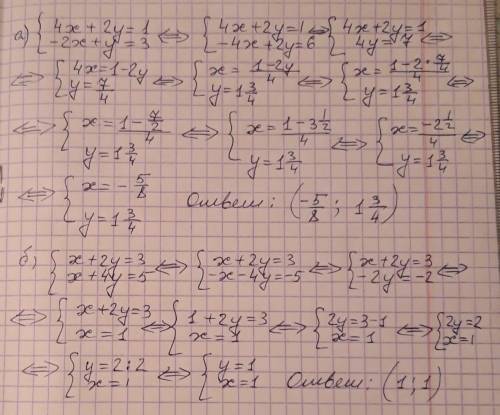 а) { 4x + 2y = 1 ; -2x + y = 3 ⇔ { 4x + 2y = 1 ; -4x + 2y = 6 ⇔ { 4x + 2y = 1 ; 4y = 7 ⇔
⇔ { 4x = 1 - 2y ; y = 7/4 ⇔ { x = (1 - 2y)/4 ; y = 1 3/4 ⇔ { x = (1 - 2 * 7/4)/4 ; y = 1 3/4 ⇔
⇔ { x = (1 - 7/2)/4 ; y = 1 3/4 ⇔ { x = (1 - 3 1/2)/4 ; y = 1 3/4 ⇔ { x = (-2 1/2)/4 ; y = 1 3/4 ⇔
⇔ { x = - 5/8 ; y = 1 3/4 Ответ: (-5/8 ; 1 3/4)
б) { x + 2y = 3 ; x + 4y = 5 ⇔ { x + 2y = 3 ; -x - 4y = -5 ⇔ { x + 2y = 3 ; -2y = -2 ⇔
⇔ { x + 2y = 3 ; x = 1 ⇔ { 1 + 2y = 3 ; x = 1 ⇔ { 2y = 3 - 1 ; x = 1 ⇔ { 2y = 2 ; x = 1
⇔ { y = 2 : 2 ; x = 1 ⇔ { y = 1 ; x = 1 Ответ: (1 ; 1)